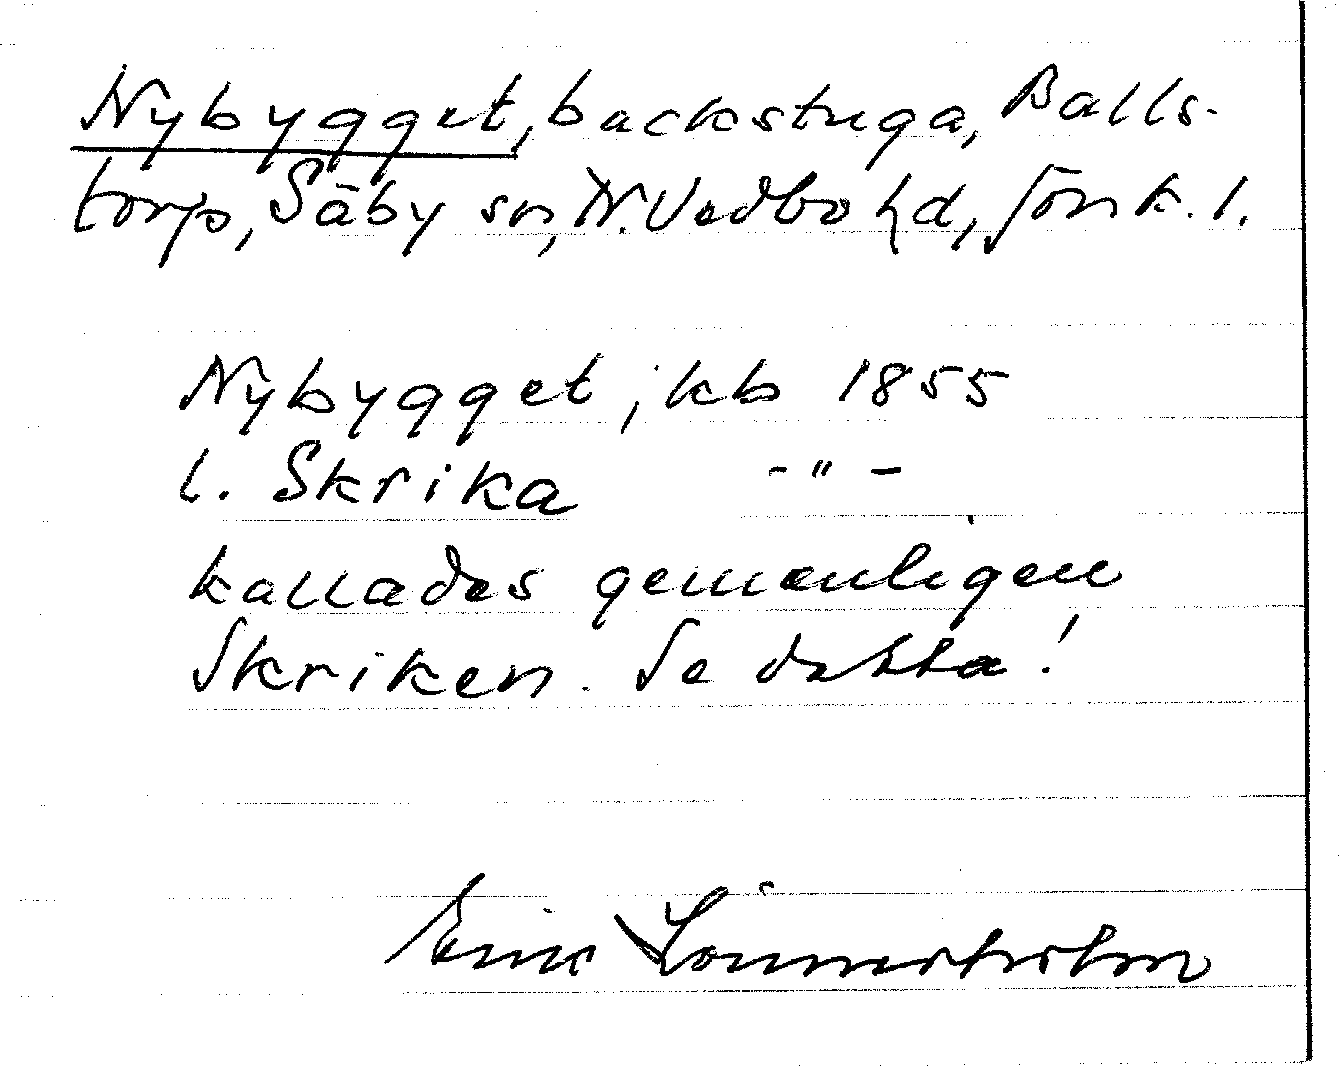 Nybygget, backstuga, Balls-
torp, Säby sn, N. Vedbo hd, Jönk. l.
Nybygget ; kb 1855
l. Skrika -"-
kallades gemenligen
Skriken. Se detta!
Eric Lönnerholm